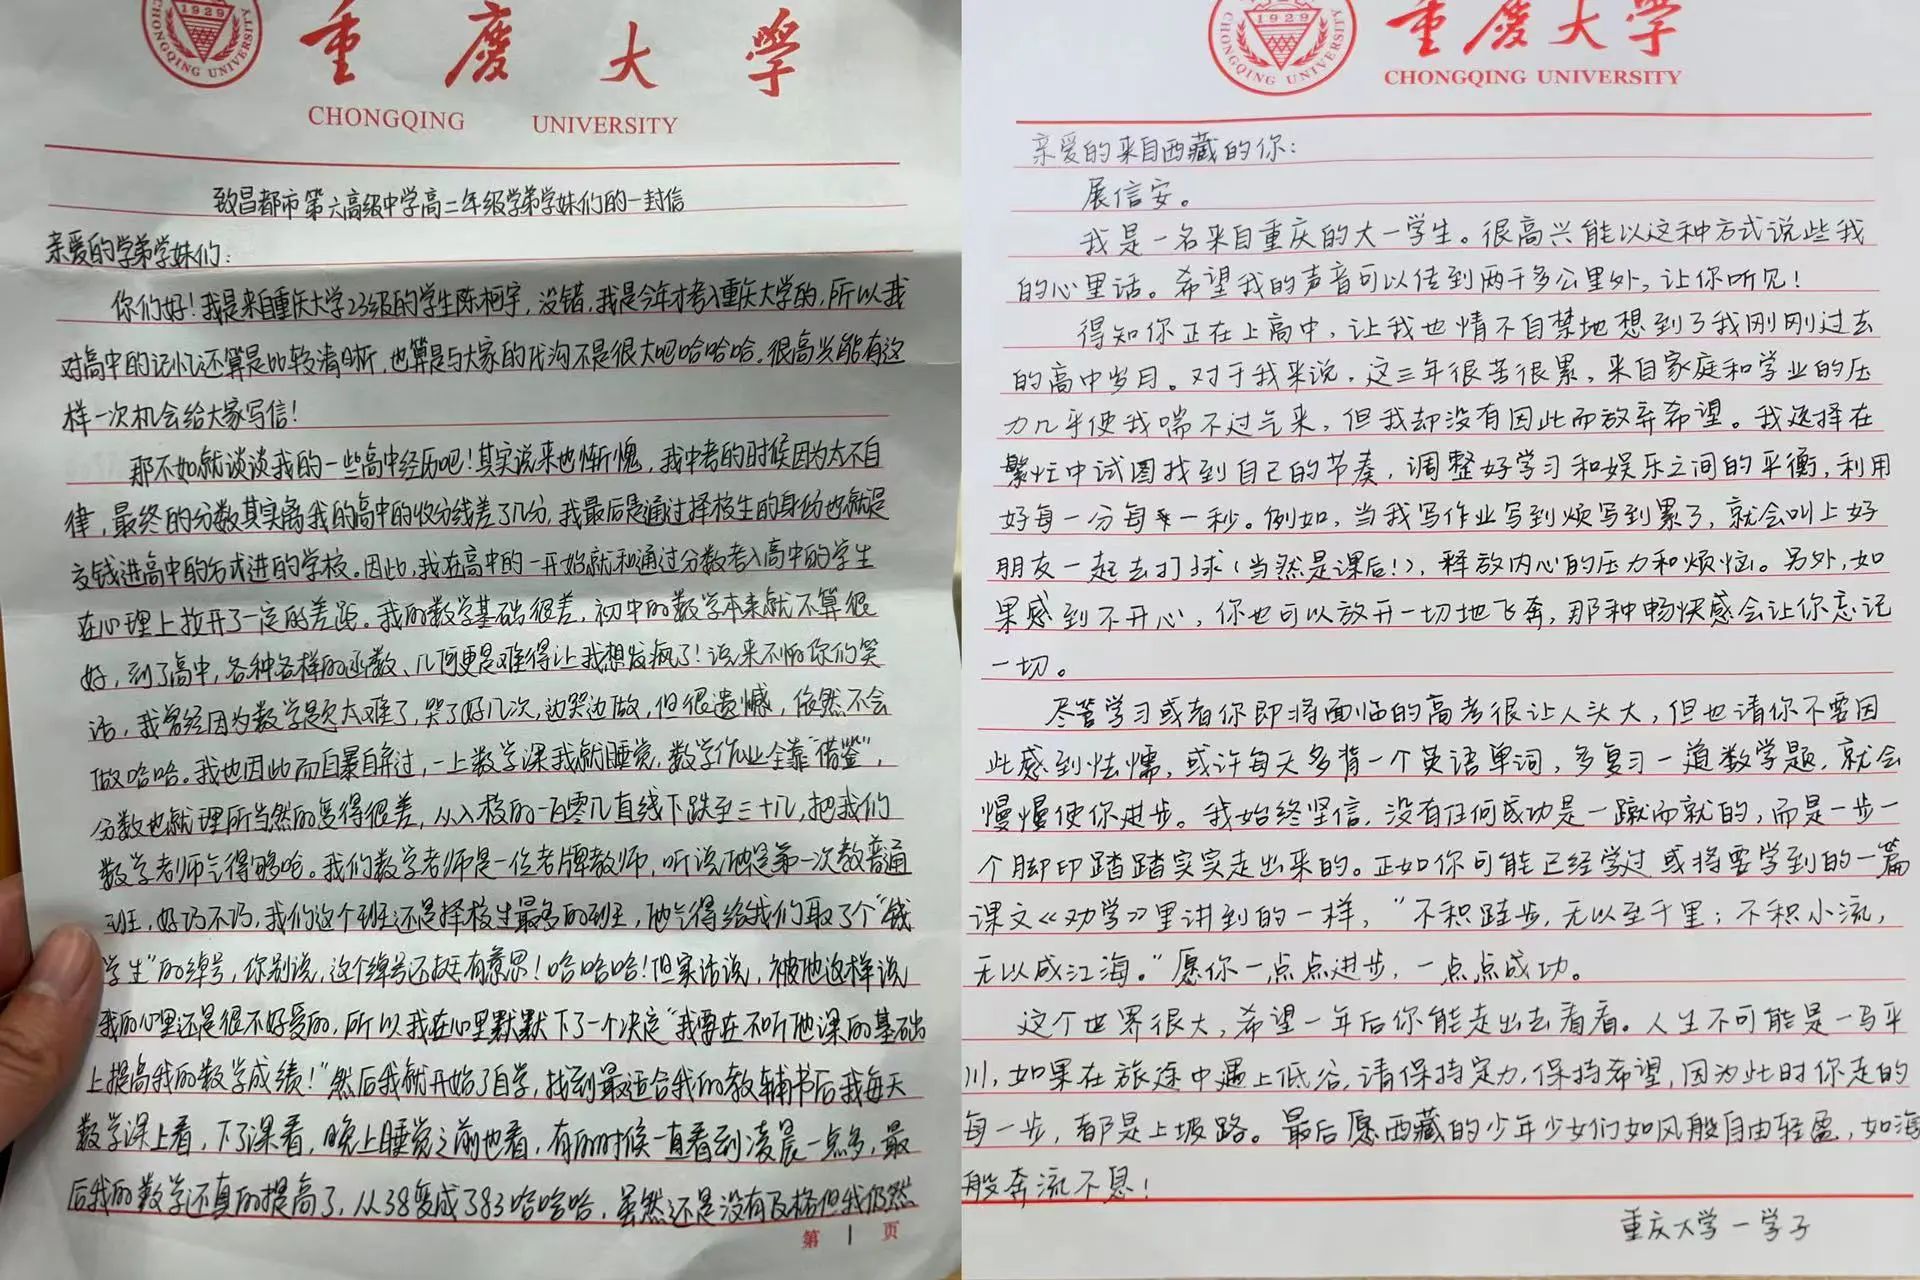 1929
CHONGQING UNIVERSITY
重庆大学
CHONGQING UNIVERSITY
致昌都市第六高级中学高二年级学弟学妹们的一封信
亲爱的学弟学妹们:
你们好!我是来自重庆大学23级的学生陈柯宇,没错,我是今年才考入重庆大学的,所以我
对高中的记忆还算是比较清晰,也算是与大家的代沟不是很大吧哈哈哈。很高兴能有这
样一次机会给大家写信!
那不如就谈谈我的一些高中经历吧!其实说来也惭愧,我中考的时候因为太不自
律,最终的分数其实离我的高中的收分线差了几分,我最后是通过择校生的身份也就是
交钱进高中的方式进的学校。因此,我在高中的一开始就和通过分数考入高中的学生
在心理上拉开了一定的差距。我的数学基础很差,初中的数学本来就不算很
好,到了高中,各种各样的函数、几何更是难得让我想发疯了!说来不怕你们笑
话,我曾经因为数学题太难了,哭了好几次,边哭边做,但很遗憾,依然不会
做哈哈。我也因此而自暴自弃过,一上数学课我就睡觉,数学作业全靠“借鉴”,
分数也就理所当然的变得很差,从入校的一百零几直线下跌至三十几,把我们
数学老师气得够呛。我们数学老师是一位老牌教师,听说他是第一次教普通
班,好巧不巧,我们这个班还是择校生最多的班,他气得给我们取了个“钱
学生”的绰号,你别说,这个绰号还挺有意思!哈哈哈!但实话说,被他这样说
我的心里还是很不好受的,所以我在心里默默下了一个决定“我要在不听他课的基础
上提高我的数学成绩!”然后我就开始了自学,找到最适合我的教辅书后我每天
数学课上看,下了课看,晚上睡觉之前也看,有的时候一直看到凌晨一点多,最
后我的数学还真的提高了,从38变成了83哈哈哈,虽然还是没有及格但我仍然
第 1 页
1929
CHONGQING UNIVERSITY
重庆大学
CHONGQING UNIVERSITY
亲爱的来自西藏的你:
展信安。
我是一名来自重庆的大一学生。很高兴能以这种方式说些我
的心里话。希望我的声音可以传到两千多公里外,让你听见!
得知你正在上高中,让我也情不自禁地想到了我刚刚过去
的高中岁月。对于我来说,这三年很苦很累,来自家庭和学业的压
力几乎使我喘不过气来,但我却没有因此而放弃希望。我选择在
繁忙中试图找到自己的节奏,调整好学习和娱乐之间的平衡,利用
好每一分每一秒。例如,当我写作业写到烦写到累了,就会叫上好
朋友一起去打球(当然是课后!),释放内心的压力和烦恼。另外,如
果感到不开心,你也可以放开一切地飞奔,那种畅快感会让你忘记
一切。
尽管学习或者你即将面临的高考很让人头大,但也请你不要因
此感到怯懦,或许每天多背一个英语单词,多复习一道数学题,就会
慢慢使你进步。我始终坚信,没有任何成功是一蹴而就的,而是一步一
个脚印踏踏实实走出来的。正如你可能已经学过或将要学到的一篇
课文《劝学》里讲到的一样,“不积跬步,无以至千里;不积小流,
无以成江海。”愿你一点点进步,一点点成功。
这个世界很大,希望一年后你能走出去看看。人生不可能是一马平
川,如果在旅途中遇上低谷,请保持定力,保持希望,因为此时你走的
每一步,都是上坡路。最后愿西藏的少年少女们如风般自由轻盈,如海
般奔流不息!
重庆大学一学子